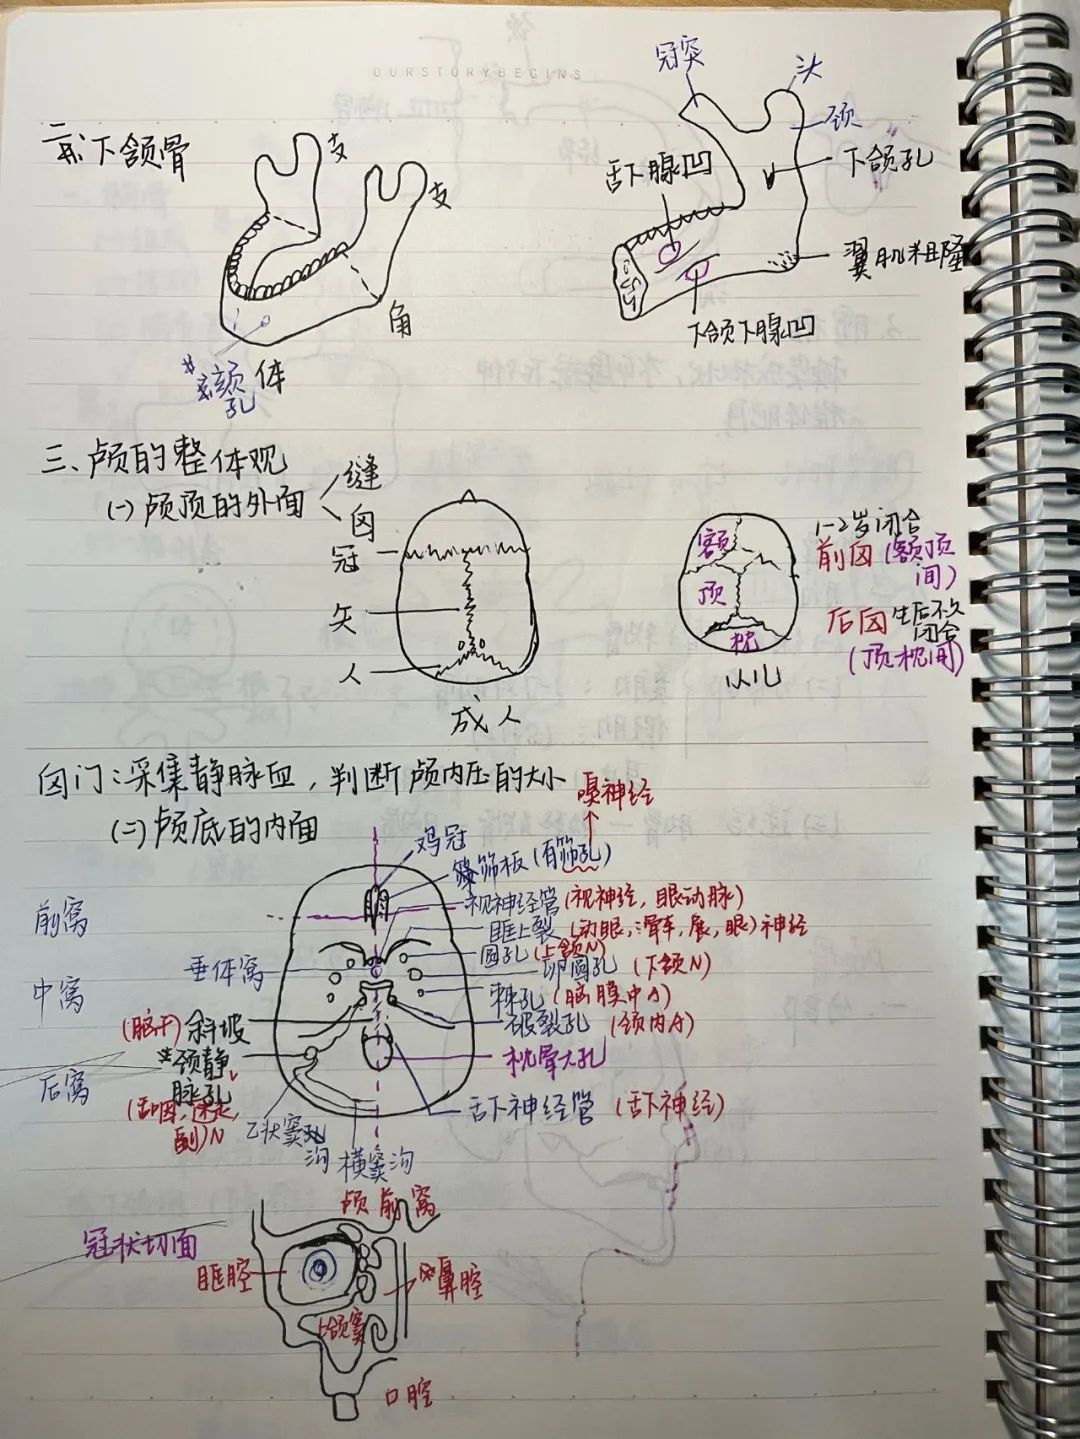 OURSTORYBEGINS
二、下颌骨
支
支
角
体
颏孔
冠突
头
颈
下颌孔
舌下腺凹
翼肌粗隆
下颌下腺凹
三、颅的整体观
(一)颅顶的外面
缝
囟
冠
矢
人
成人
额
顶
枕
1-2岁闭合
前囟(额顶间)
后囟 生后不久闭合
(顶枕间)
囟门:采集静脉血,判断颅内压的大小
(二)颅底的内面
嗅神经
鸡冠
筛板(有筛孔)
视神经管(视神经,眼动脉)
眶上裂(动眼,滑车,展,眼)神经
圆孔(上颌N)
卵圆孔(下颌N)
棘孔(脑膜中A)
破裂孔(颈内A)
枕骨大孔
舌下神经管(舌下神经)
前窝
中窝
后窝
垂体窝
(脑干)斜坡
*颈静脉孔
(舌咽,迷走,副)N
乙状窦沟
横窦沟
冠状切面
颅前窝
眶腔
鼻腔
上颌窦
口腔